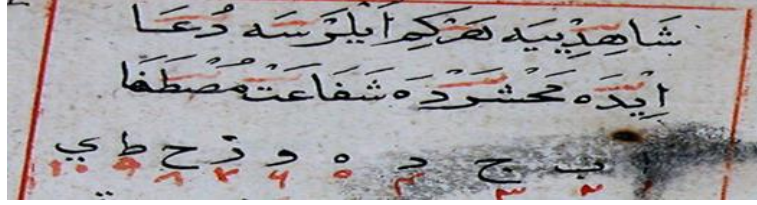 شَاهِدِيَيه هَرْكِمْ اَيْلَرْسَه دُعَا
اِيْدَه مَحْشَرْدَه شَفَاعَتْ مُصْطَفَا
ا ب ج د ه و ز ح ط ي
١ ٢ ٣ ٤ ٥ ٦ ٧ ٨ ٩ ١٠